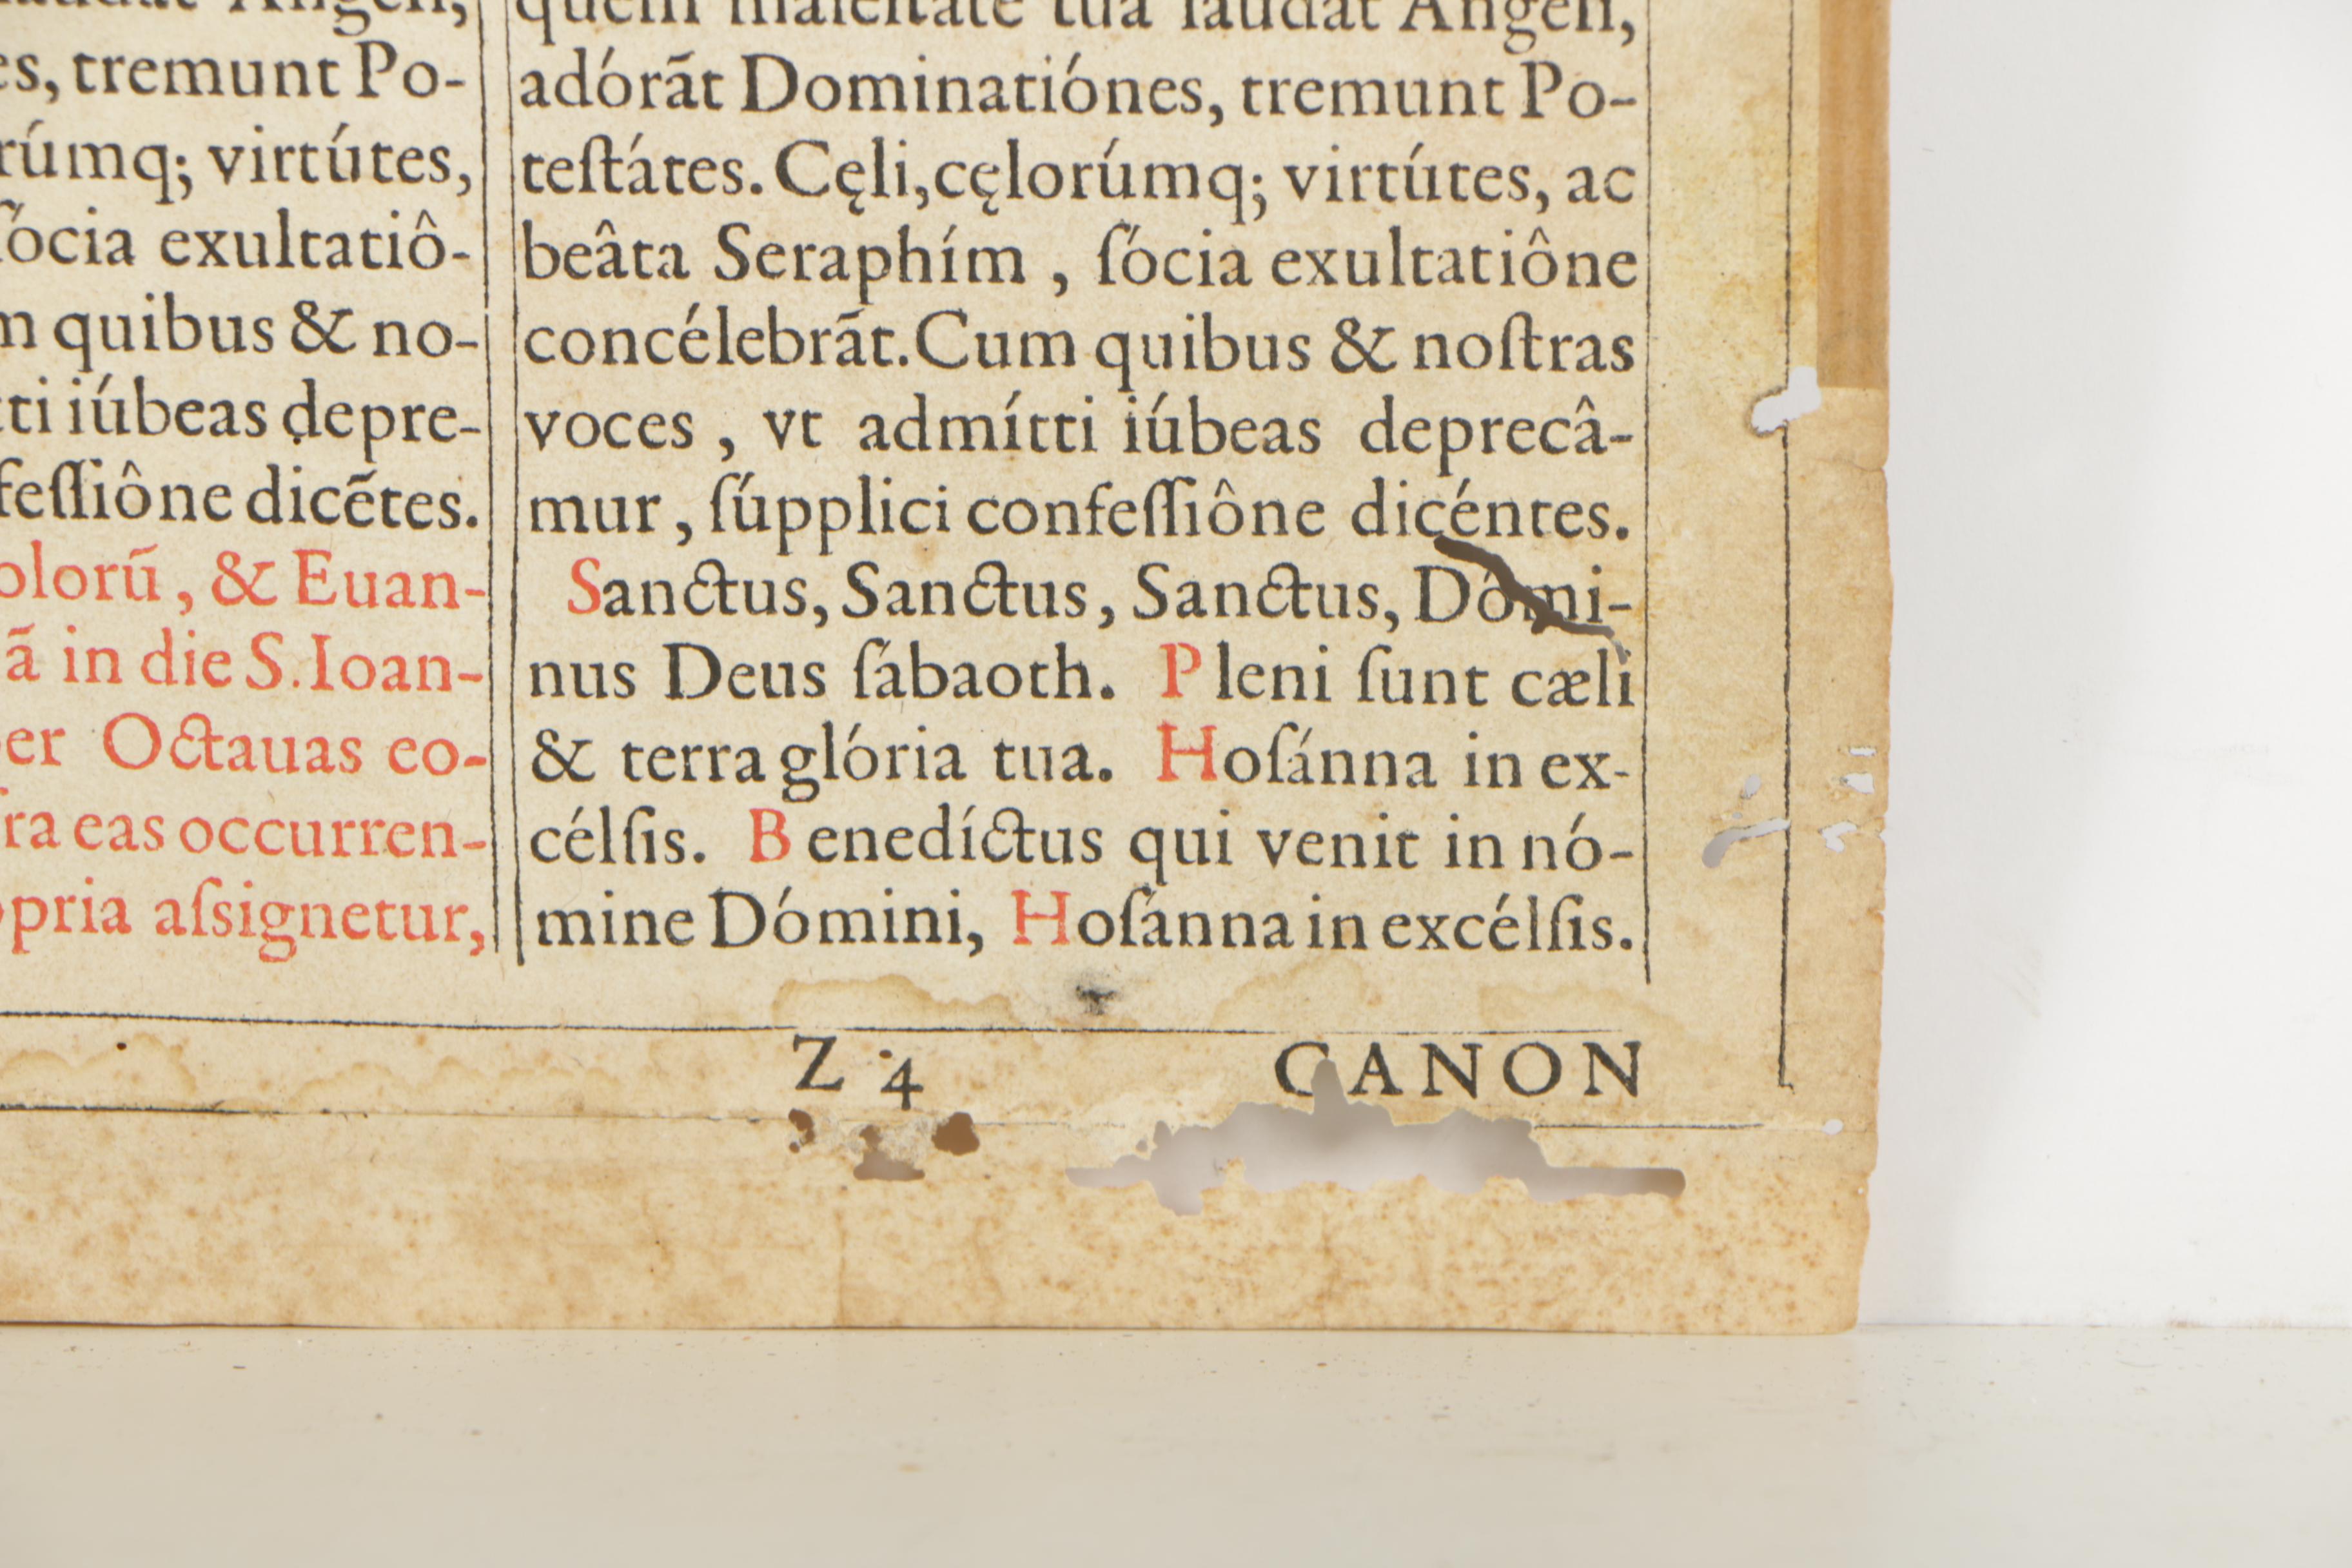 es, tremunt Po-
rúmq; virtútes,
ſócia exultatiô-
m quibus & no-
tti iúbeas depre-
feſſiône dicẽtes.
olorũ, & Euan-
ã in die S. Ioan-
per Octauas eo-
fra eas occurren-
opria aſsignetur,
quem maieſtate tua laudat Angeli,
adórãt Dominatiónes, tremunt Po-
teſtátes. Cęli, cęlorúmq; virtútes, ac
beâta Seraphím , ſócia exultatiône
concélebrãt. Cum quibus & noſtras
voces , vt admítti iúbeas deprecâ-
mur, ſúpplici confeſſiône dicéntes.
Sanctus, Sanctus, Sanctus, Dómi-
nus Deus ſábaoth. Pleni ſunt cæli
& terra glória tua. Hoſánna in ex-
célſis. Benedíctus qui venit in nó-
mine Dómini, Hoſánna in excélſis.
Z 4 CANON